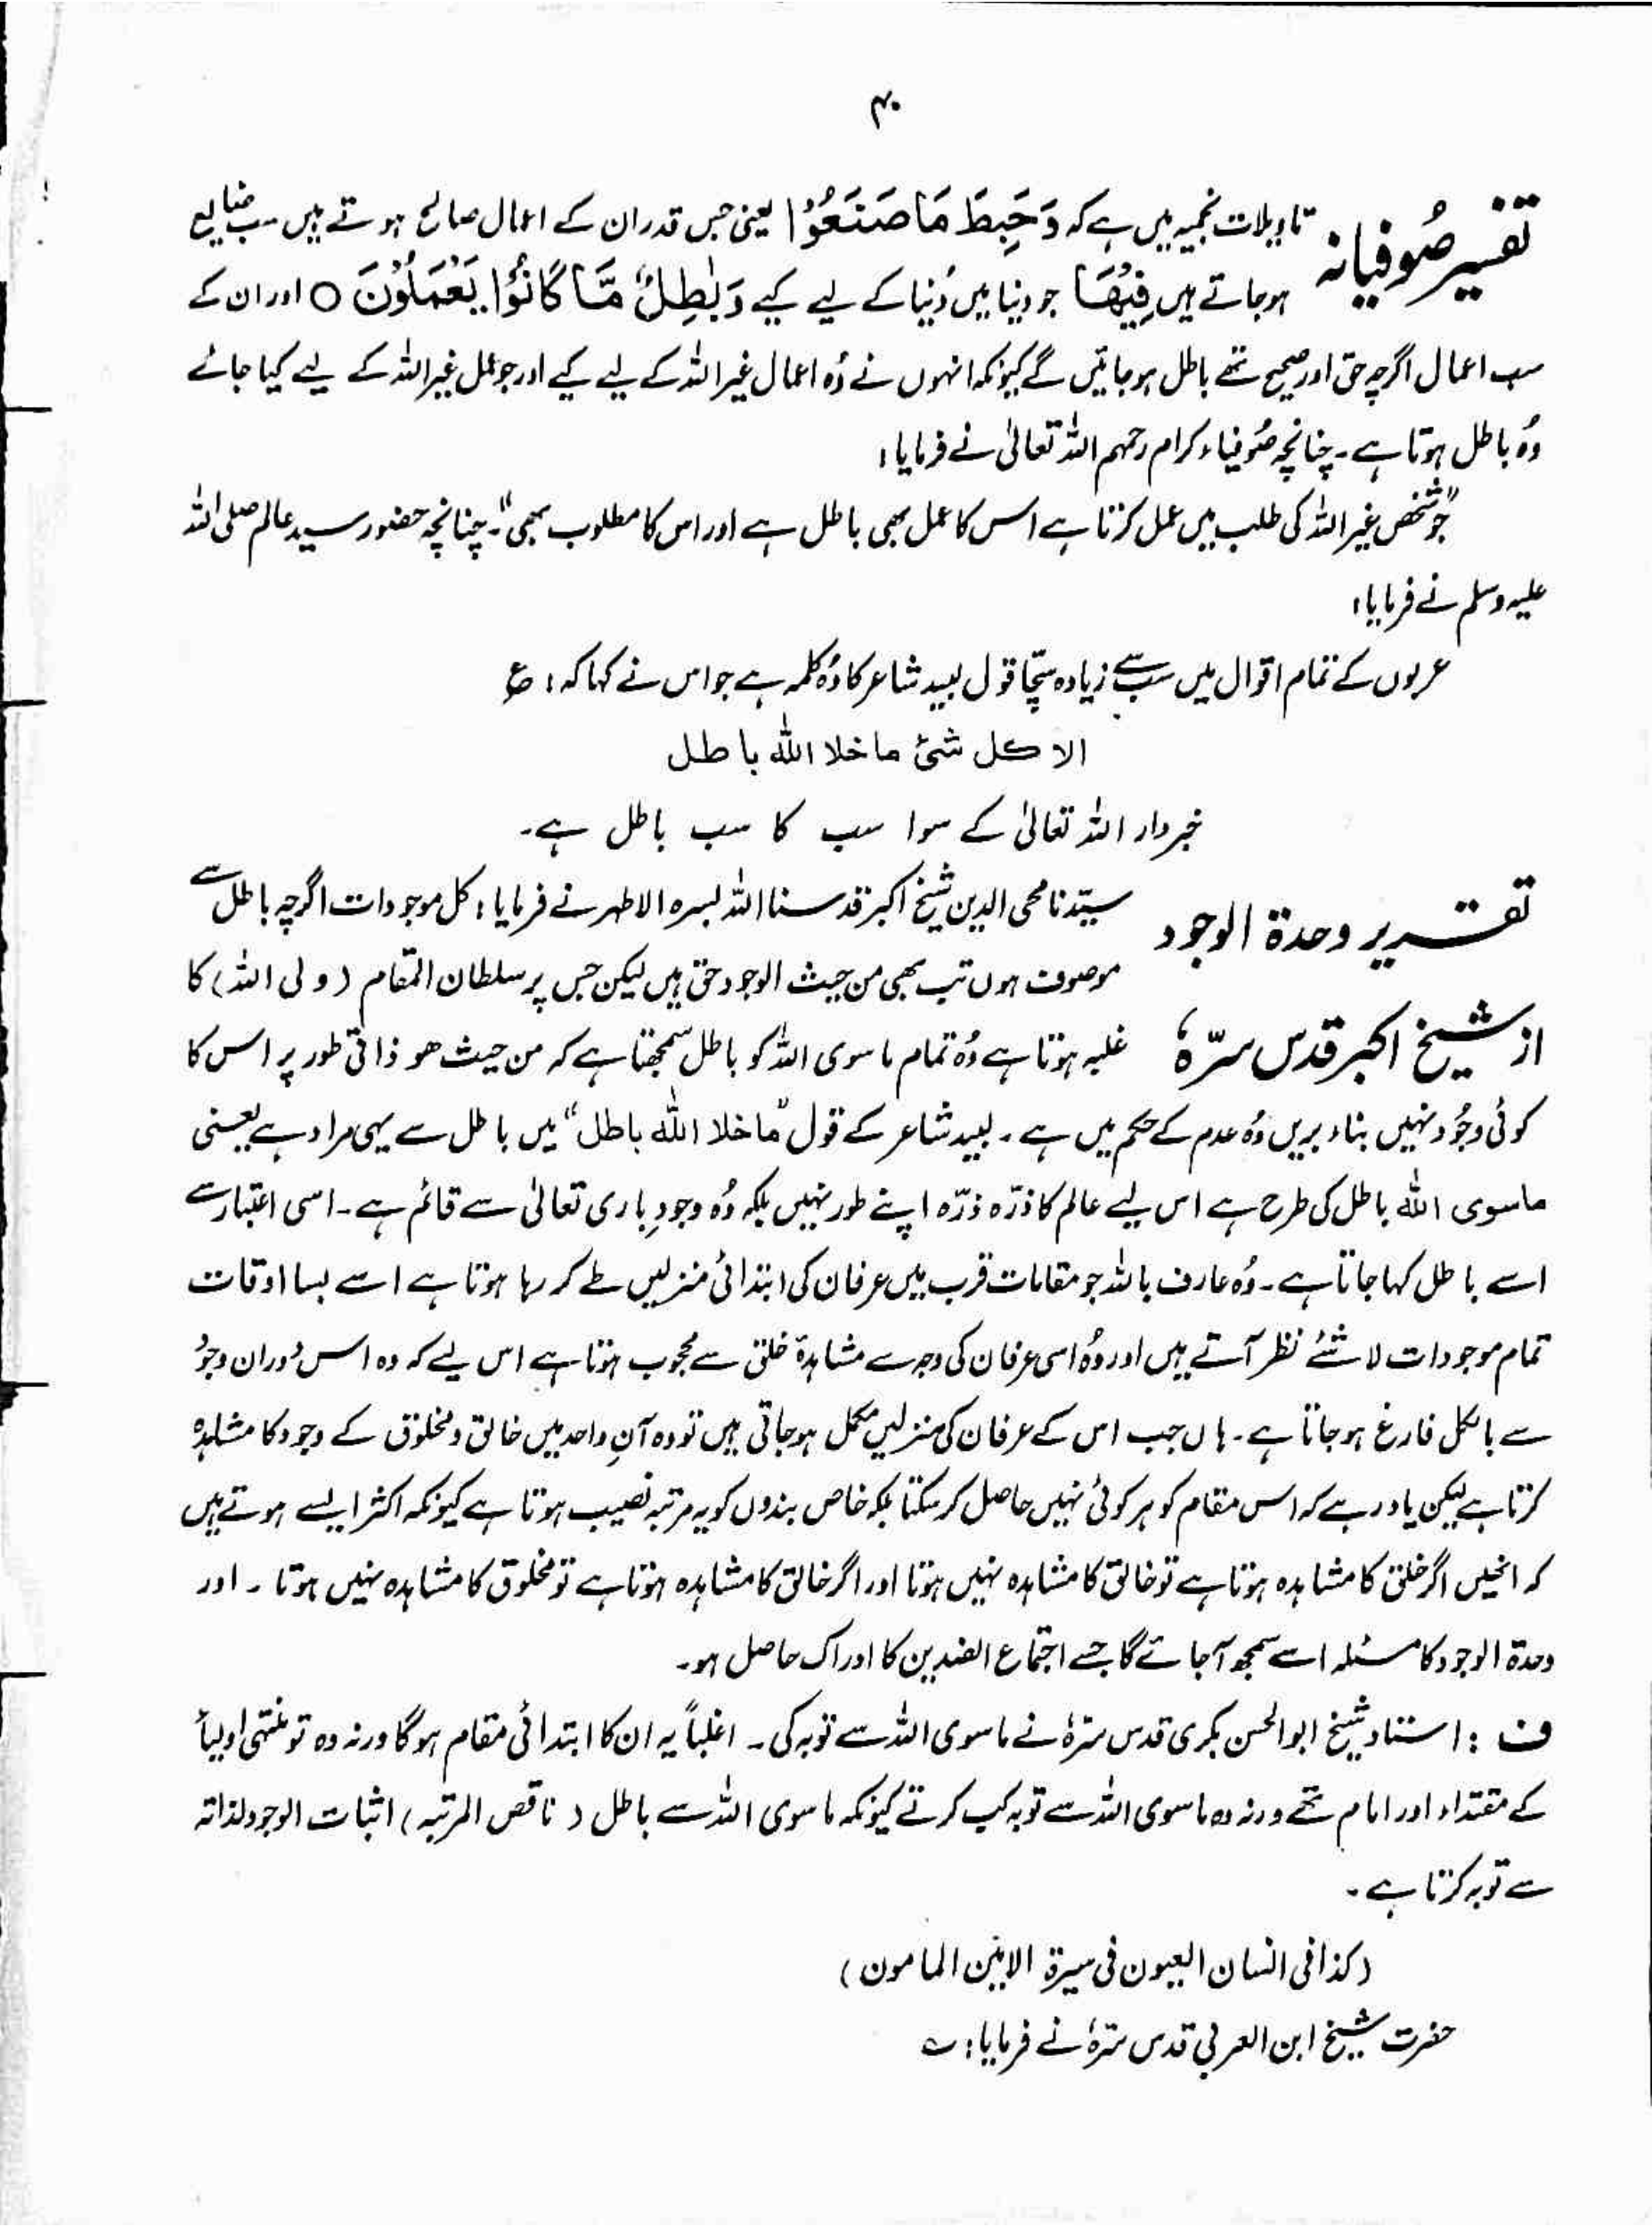 ۴۰
تفسیر صُوفیانہ
تاویلات نجمیہ میں ہے کہ وَحَبِطَ مَا صَنَعُوْا یعنی جس قدر ان کے اعمال صالح ہوتے ہیں سب ضایع
ہوجاتے ہیں فِیْھَا جو دنیا میں دُنیا کے لیے کیے وَبٰطِلٌ مَّا کَانُوْا یَعْمَلُوْنَ ○ اور ان کے
سب اعمال اگرچہ حق اور صحیح تھے باطل ہوجائیں گے کیونکہ انہوں نے وُہ اعمال غیر اللہ کے لیے کیے اور جو عمل غیر اللہ کے لیے کیا جائے
وُہ باطل ہوتا ہے۔ چنانچہ صُوفیاء کرام رحمہم اللہ تعالیٰ نے فرمایا:
"جو شخص غیر اللہ کی طلب میں عمل کرتا ہے اس کا عمل بھی باطل ہے اور اس کا مطلوب بھی"۔ چنانچہ حضور سید عالم صلی اللہ
علیہ وسلم نے فرمایا:
عربوں کے تمام اقوال میں سب سے زیادہ سچّا قول لبید شاعر کا وُہ کلمہ ہے جو اس نے کہا کہ: ؏
الا کل شئ ما خلا اللہ باطل
خبردار اللہ تعالیٰ کے سوا سب کا سب باطل ہے۔
تقریر وحدۃ الوجود
از شیخ اکبر قدس سرّہٗ
سیّدنا محی الدین شیخ اکبر قدسنا اللہ بسرہ الاطہر نے فرمایا: کل موجودات اگرچہ باطل سے
موصوف ہوں تب بھی من حیث الوجود حق ہیں لیکن جس پر سلطان المقام (ولی اللہ) کا
غلبہ ہوتا ہے وُہ تمام ماسوی اللہ کو باطل سمجھتا ہے کہ من حیث ھو ذاتی طور پر اس کا
کوئی وجُود نہیں بناء بریں وُہ عدم کے حکم میں ہے۔ لبید شاعر کے قول "ما خلا اللہ باطل" میں باطل سے یہی مراد ہے یعنی
ماسوی اللہ باطل کی طرح ہے اس لیے عالم کا ذرّہ ذرّہ اپنے طور نہیں بلکہ وُہ وجودِ باری تعالیٰ سے قائم ہے۔ اسی اعتبار سے
اسے باطل کہا جاتا ہے۔ وُہ عارف باللہ جو مقامات قرب میں عرفان کی ابتدائی منزلیں طے کر رہا ہوتا ہے اسے بسا اوقات
تمام موجودات لا شئے نظر آتے ہیں اور وُہ اسی عرفان کی وجہ سے مشاہدۂ خلق سے محجوب ہوتا ہے اس لیے کہ وہ اس دَوران وجُود
سے بالکل فارغ ہوجاتا ہے۔ ہاں جب اس کے عرفان کی منزلیں مکمل ہوجاتی ہیں تو وہ آنِ واحد میں خالق و مخلوق کے وجود کا مشاہدہ
کرتا ہے لیکن یاد رہے کہ اس مقام کو ہر کوئی نہیں حاصل کر سکتا بلکہ خاص بندوں کو یہ مرتبہ نصیب ہوتا ہے کیونکہ اکثر ایسے ہوتے ہیں
کہ انھیں اگر خلق کا مشاہدہ ہوتا ہے تو خالق کا مشاہدہ نہیں ہوتا اور اگر خالق کا مشاہدہ ہوتا ہے تو مخلوق کا مشاہدہ نہیں ہوتا۔ اور
وحدۃ الوجود کا مسئلہ اسے سمجھ آجائے گا جسے اجتماع الضدین کا ادراک حاصل ہو۔
ف : استاد شیخ ابوالحسن بکری قدس سرّہٗ نے ماسوی اللہ سے توبہ کی۔ اغلباً یہ ان کا ابتدائی مقام ہوگا ورنہ وہ تو منتہی اولیاً
کے مقتداء اور امام تھے ورنہ وہ ماسوی اللہ سے توبہ کب کرتے کیونکہ ماسوی اللہ سے باطل (ناقص المرتبہ) اثبات الوجود لذاتہ
سے توبہ کرتا ہے۔
(کذا فی انسان العیون فی سیرۃ الامین المامون)
حضرت شیخ ابن العربی قدس سرّہٗ نے فرمایا: ؎